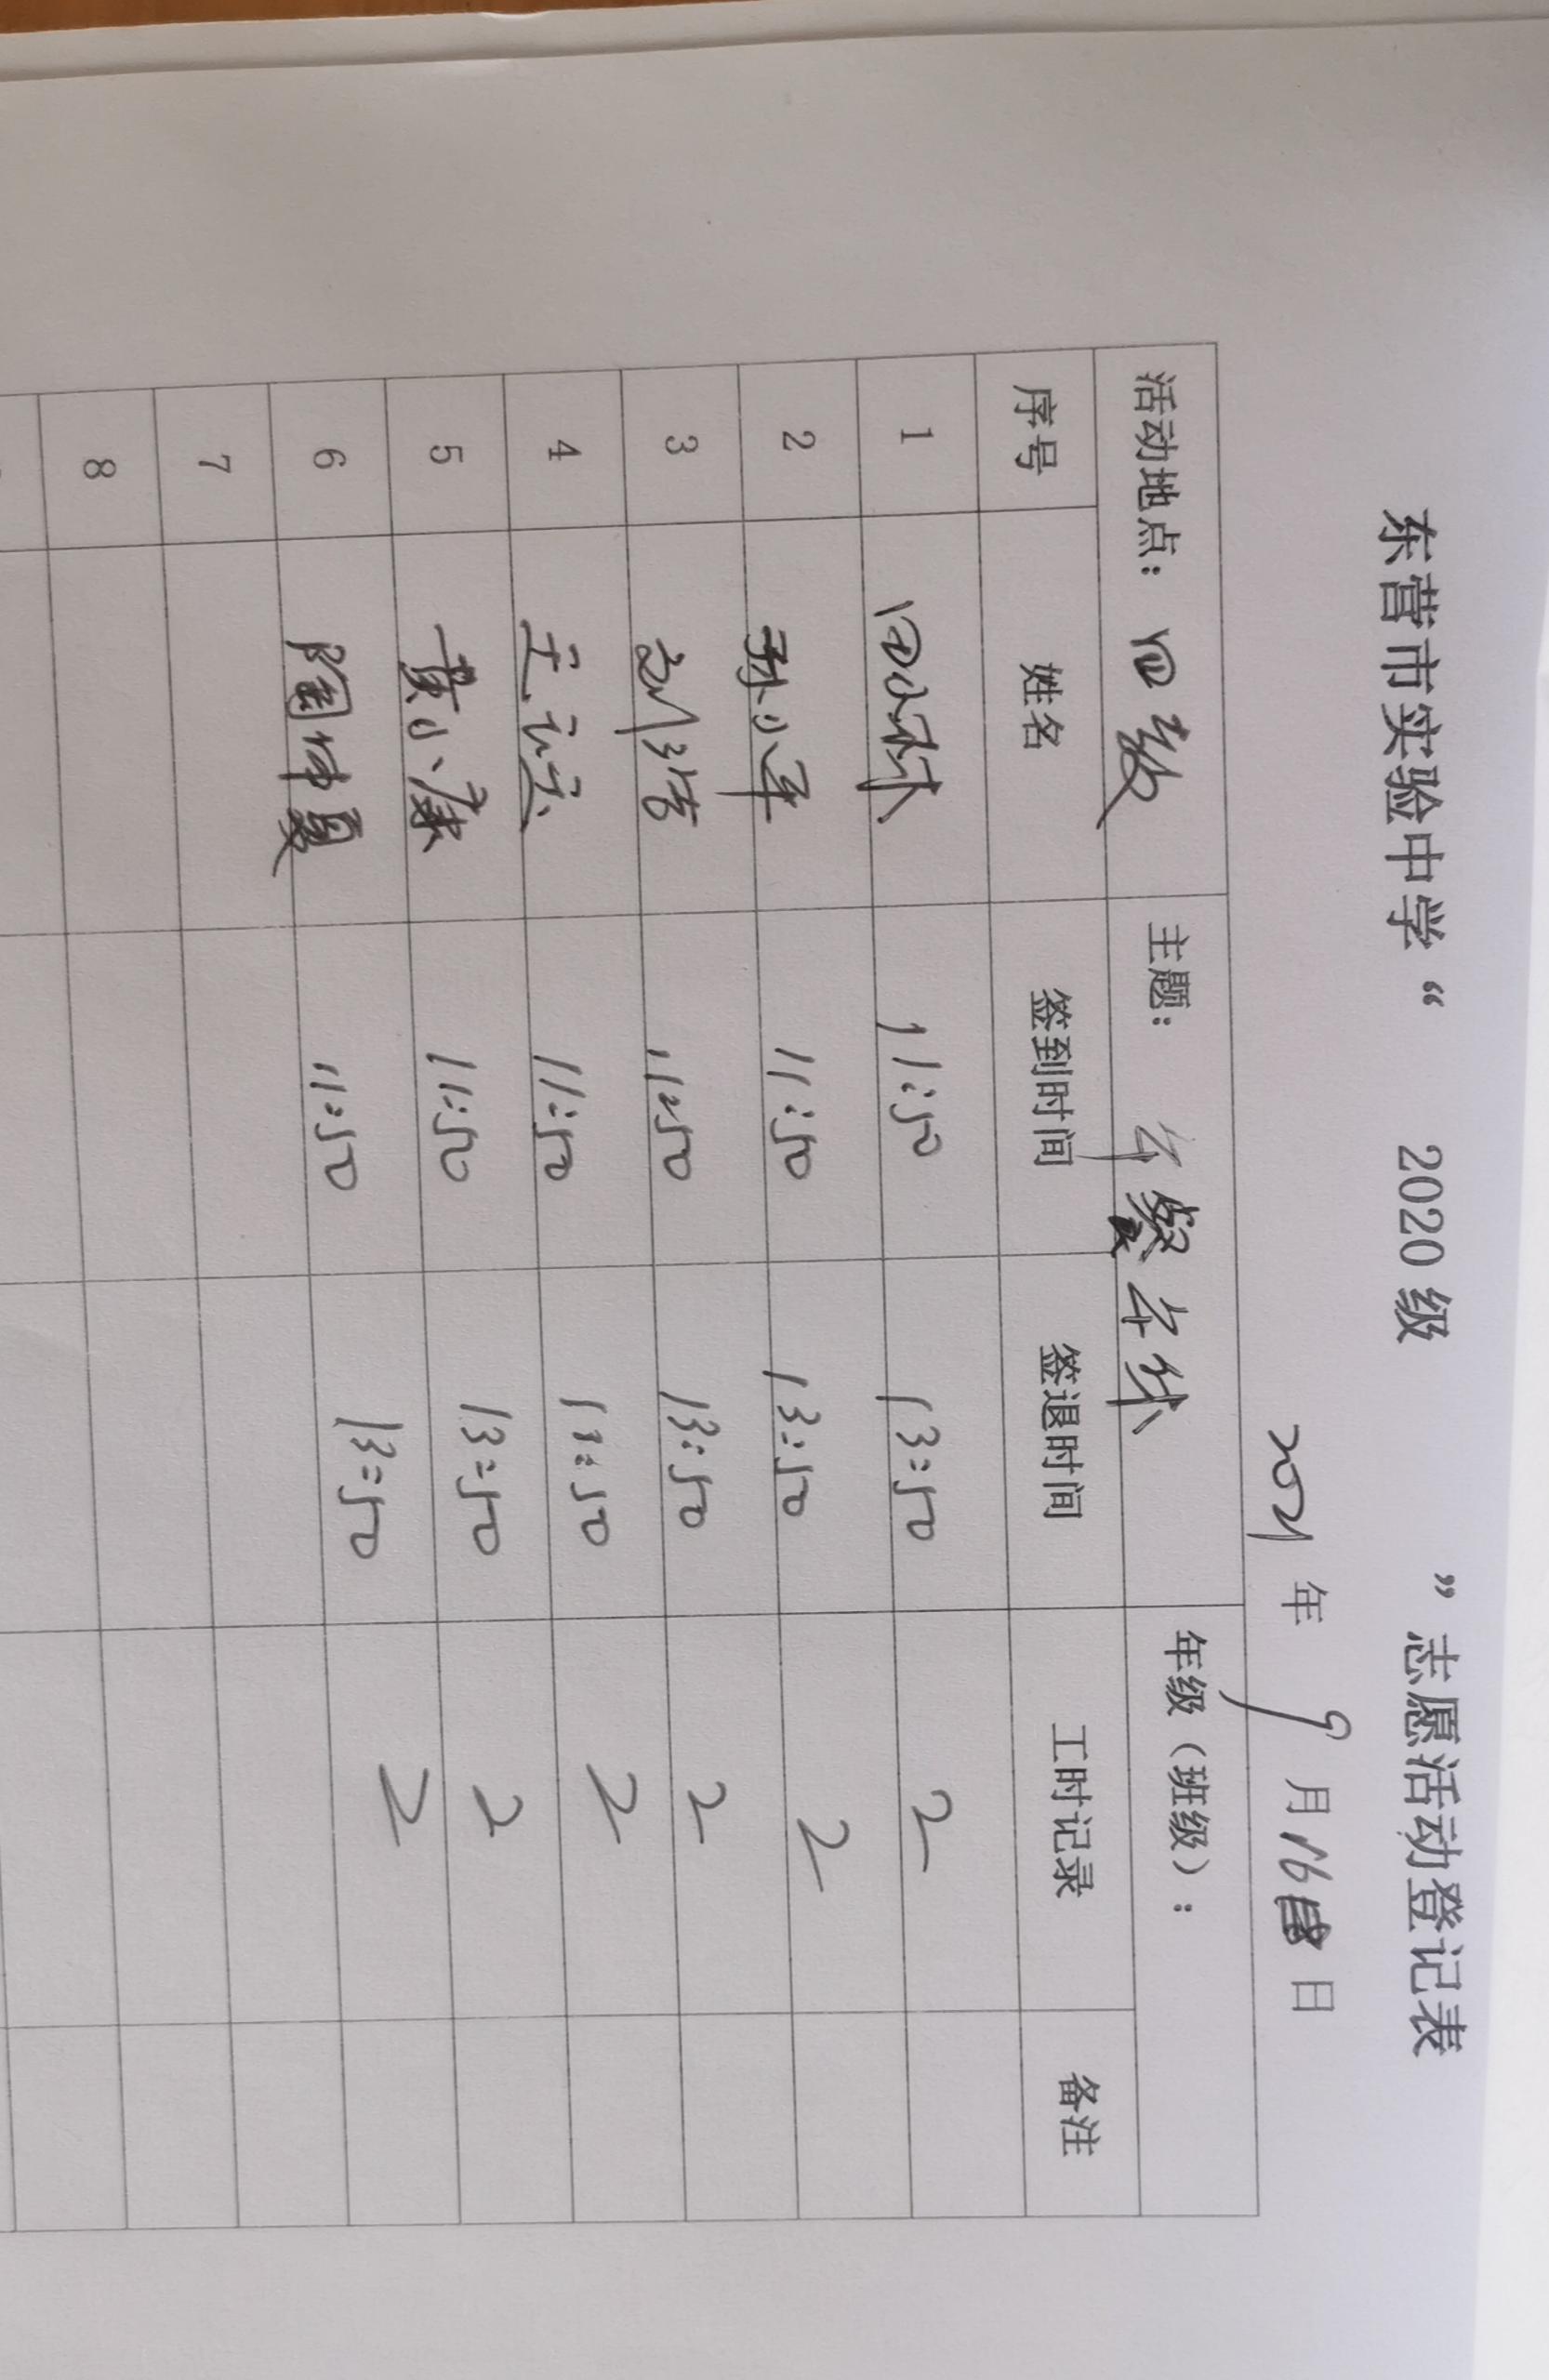 东营市实验中学“ 2020 级 ”志愿活动登记表
2021 年 9 月 16 日
活动地点： 四教 主题： 年级（班级）：
序号 姓名 签到时间 签退时间 工时记录 备注
1 11:50 13:50 2
2 孙小军 11:50 13:50 2
3 刘 11:50 13:50 2
4 王 11:50 13:50 2
5 黄小康 11:50 13:50 2
6 陶 11:50 13:50 2
7
8